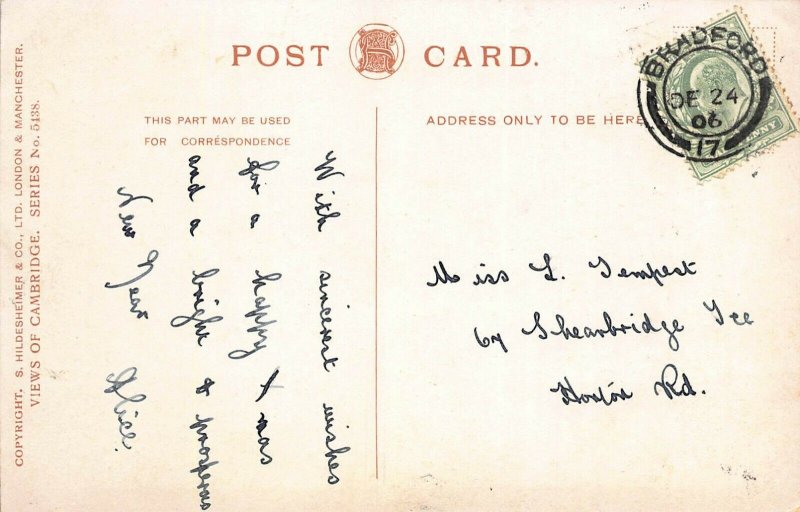 POST CARD.
THIS PART MAY BE USED
FOR CORRESPONDENCE
ADDRESS ONLY TO BE HERE
BRADFORD
DE 24
06
17
With sincerest wishes
for a happy Xmas
and a bright & prosperous
New Year
Alice.
Miss L. Tempest
67 Shearbridge Tce
Horton Rd.
COPYRIGHT. S. HILDESHEIMER & CO., LTD. LONDON & MANCHESTER.
VIEWS OF CAMBRIDGE. SERIES No. 5138.